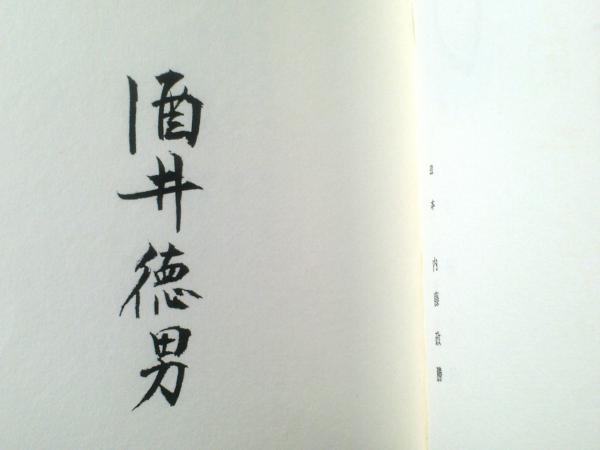 酒井徳男
日本 内藤政勝